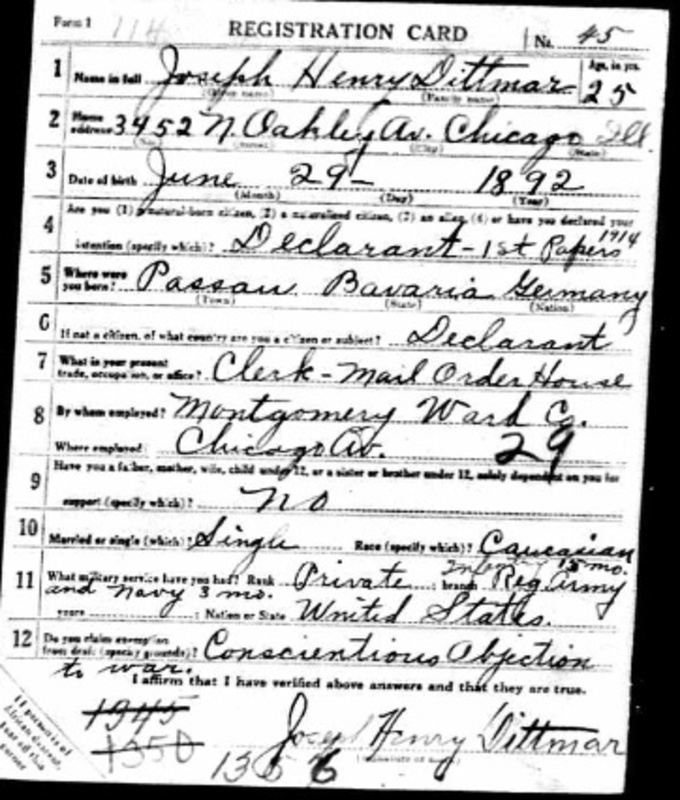 Form 1 114 REGISTRATION CARD No. 45
1 Name in full Joseph Henry Dittmar Age, in yrs. 25
(Given name) (Family name)
2 Home address 3452 N. Oakley Av. Chicago Ill.
(No.) (Street) (City) (State)
3 Date of birth June 29 - 1892
(Month) (Day) (Year)
4 Are you (1) a natural-born citizen, (2) a naturalized citizen, (3) an alien, (4) or have you declared your
intention (specify which)? Declarant - 1st Papers 1914
5 Where were you born? Passau Bavaria Germany
(Town) (State) (Nation)
6 If not a citizen, of what country are you a citizen or subject? Declarant
7 What is your present trade, occupation, or office? Clerk - Mail Order House
8 By whom employed? Montgomery Ward Co.
Where employed Chicago Av. 29
9 Have you a father, mother, wife, child under 12, or a sister or brother under 12, solely dependent on you for
support (specify which)? No
10 Married or single (which)? Single Race (specify which)? Caucasian
11 What military service have you had? Rank Private ; branch Infantry 15 mo. Reg. Army
and Navy 3 mo.
years ; Nation or State United States.
12 Do you claim exemption from draft (specify grounds)? Conscientious Objection
to war.
I affirm that I have verified above answers and that they are true.
1345
1350
1356
Joseph Henry Dittmar
If person is of
African descent,
tear off this
corner